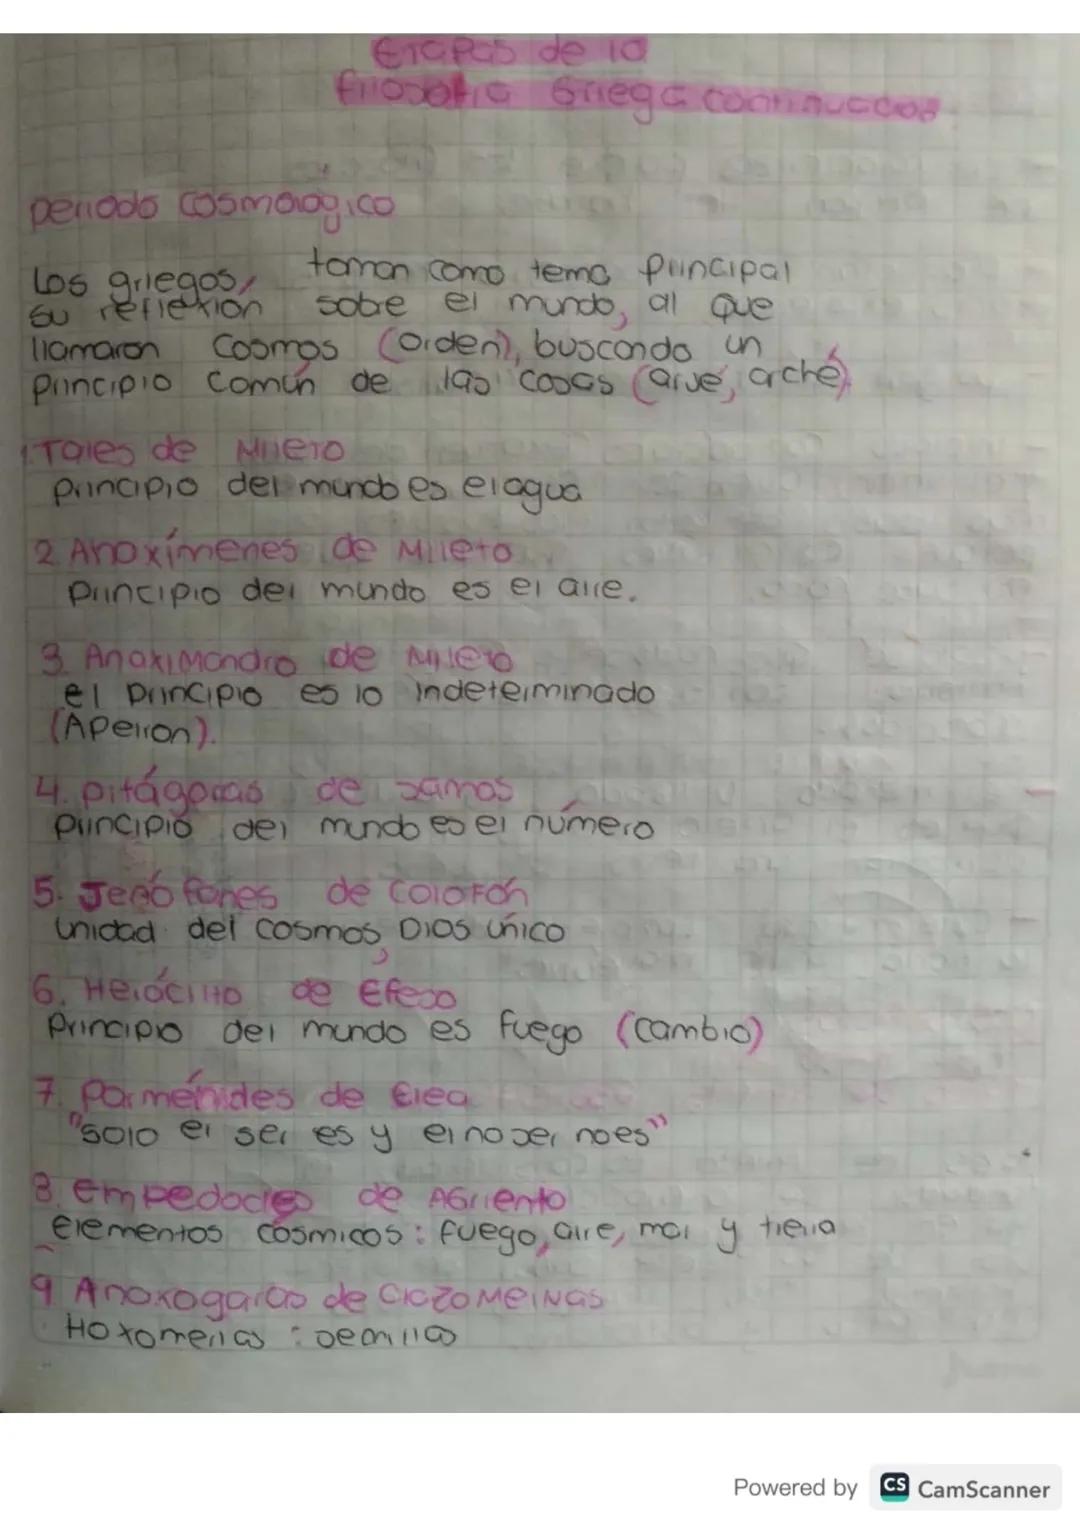 Etapas de la
filosofia Griega continuacion
periodo cosmologico
Los griegos, toman como tema principal
su reflexion sobre el mundo, al que
llamaron Cosmos (orden), buscando un
principio común de las cosas (arjé, arché).
1. Tales de Mileto
principio del mundo es el agua
2. Anaxímenes de Mileto
Principio del mundo es el aire.
3. Anaximandro de Mileto
el principio es lo indeterminado
(Apeiron).
4. pitágoras de samos
principio del mundo es el número
5. Jenófanes de Colofón
unidad del cosmos, Dios único
6. Heráclito de Efeso
Principio del mundo es fuego (cambio)
7. Parménides de Elea
"solo el ser es y el no ser no es"
8. empedocles de AGriento
Elementos cósmicos: fuego, aire, mar y tierra
9 Anaxogaras de ClazoMeiNas
Hoxomerias: semillas
Powered by CS CamScanner